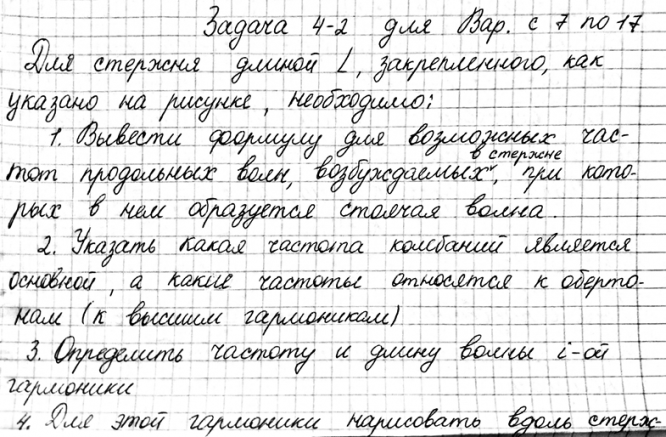 Задача 4-2 для Вар. с 7 по 17
Для стержня длиной L, закрепленного, как
указано на рисунке, необходимо:
1. Вывести формулу для возможных час-
тот продольных волн, возбуждаемых в стержне, при кото-
рых в нем образуется стоячая волна.
2. Указать какая частота колебаний является
основной, а какие частоты относятся к оберто-
нам (к высшим гармоникам)
3. Определить частоту и длину волны i-ой
гармоники
4. Для этой гармоники нарисовать вдоль стерж-